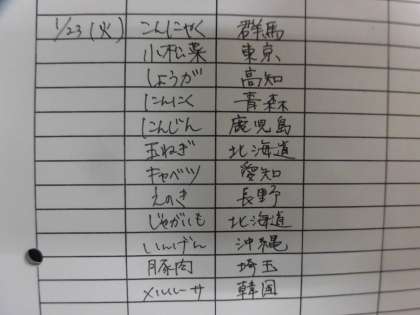 1/23(火) こんにゃく 群馬
小松菜 東京
しょうが 高知
にんにく 青森
にんじん 鹿児島
玉ねぎ 北海道
キャベツ 愛知
えのき 長野
じゃがいも 北海道
いんげん 沖縄
豚肉 埼玉
メルルーサ 韓国